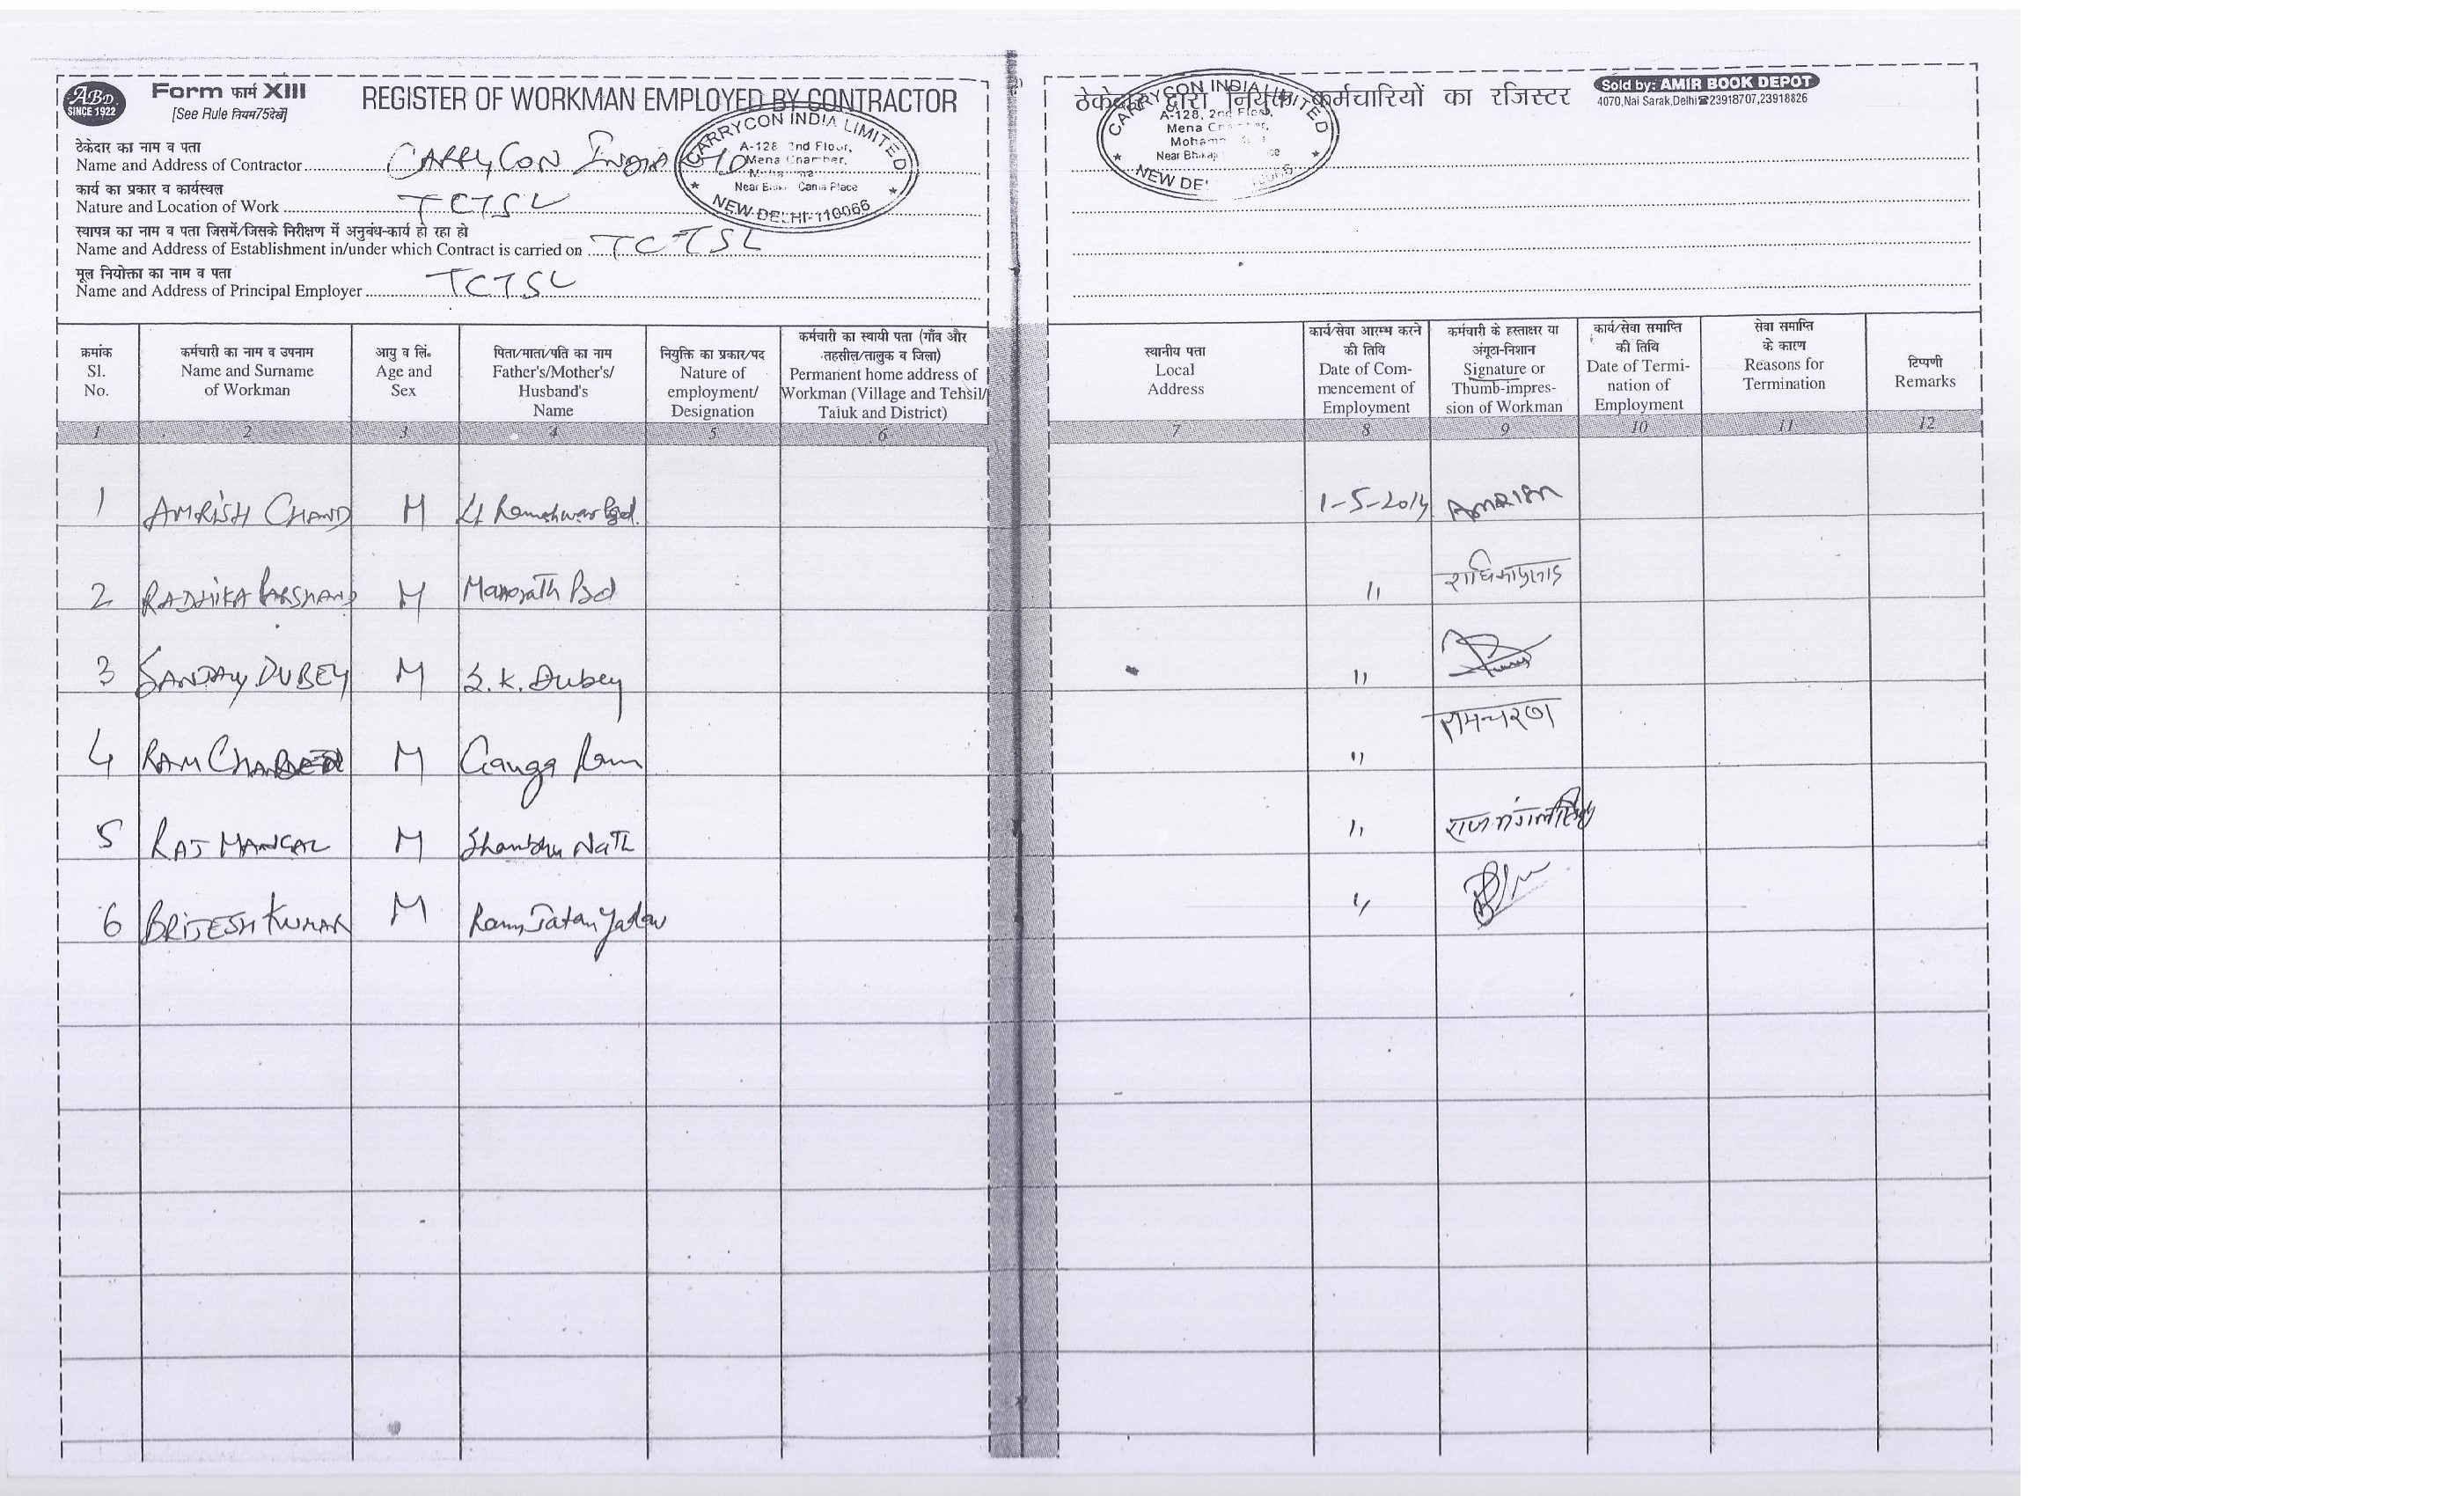 ABD
SINCE 1922
Form फार्म XIII
[See Rule नियम75देखें]
REGISTER OF WORKMAN EMPLOYED BY CONTRACTOR
ठेकेदार का नाम व पता
Name and Address of Contractor CARRYCON INDIA LTD
कार्य का प्रकार व कार्यस्थल
Nature and Location of Work TCTSL
स्थापन का नाम व पता जिसमें/जिसके निरीक्षण में अनुबंध-कार्य हो रहा हो
Name and Address of Establishment in/under which Contract is carried on TCTSL
मूल नियोक्ता का नाम व पता
Name and Address of Principal Employer TCTSL
CARRYCON INDIA LIMITED
A-128, 2nd Floor,
Mena Chamber,
Near Cama Place
NEW DELHI-110066
ठेकेदार द्वारा नियुक्त कर्मचारियों का रजिस्टर
Sold by: AMIR BOOK DEPOT
4070,Nai Sarak,Delhi☎23918707,23918826
CARRYCON INDIA LIMITED
A-128, 2nd Floor,
Mena
Near
NEW
क्रमांक
Sl.
No.
कर्मचारी का नाम व उपनाम
Name and Surname
of Workman
आयु व लिं॰
Age and
Sex
पिता/माता/पति का नाम
Father's/Mother's/
Husband's
Name
नियुक्ति का प्रकार/पद
Nature of
employment/
Designation
कर्मचारी का स्थायी पता (गाँव और
तहसील/तालुक व जिला)
Permanent home address of
Workman (Village and Tehsil/
Taluk and District)
स्थानीय पता
Local
Address
कार्य/सेवा आरम्भ करने
की तिथि
Date of Com-
mencement of
Employment
कर्मचारी के हस्ताक्षर या
अंगूठा-निशान
Signature or
Thumb-impres-
sion of Workman
कार्य/सेवा समाप्ति
की तिथि
Date of Termi-
nation of
Employment
सेवा समाप्ति
के कारण
Reasons for
Termination
टिप्पणी
Remarks
1 2 3 4 5 6 7 8 9 10 11 12
1 AMRISH CHAND M Lt Rameshwar Psd. 1-5-2014 AMRISH
2 RADHIKA PARSHAD M Manorath Psd 〃 राधिकाप्रसाद
3 SANJAY DUBEY M S.K. Dubey 〃
4 RAM CHARAN M Ganga Ram 〃 रामचरण
5 RAJ MANGAL M Shambhu Nath 〃 राजमंगल
6 BRIJESH KUMAR M Ram Jatan Yadav 〃